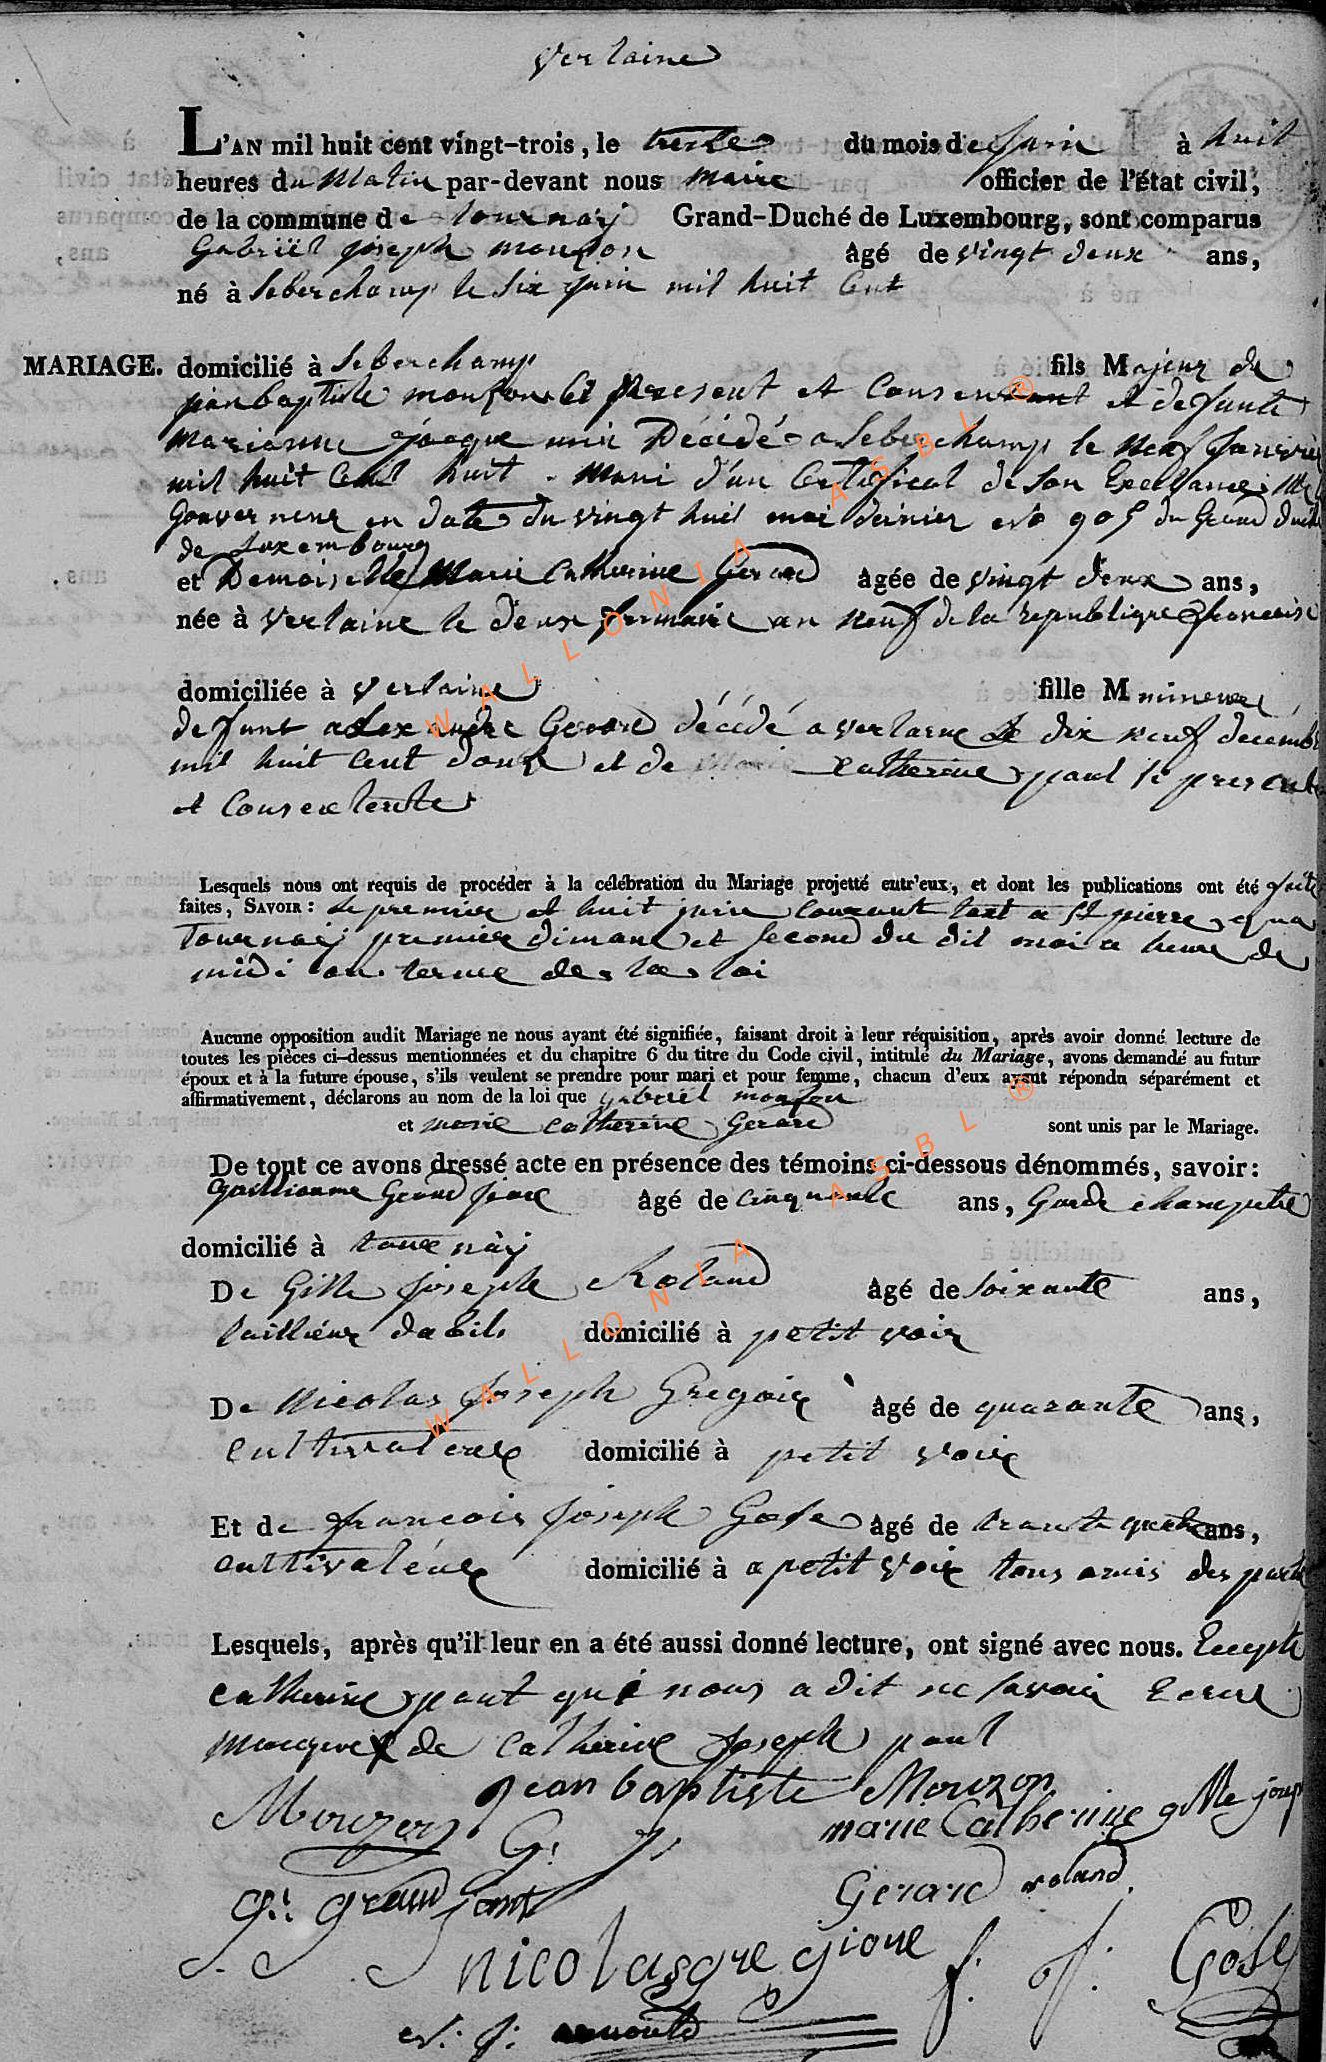 Verlaine
L'AN mil huit cent vingt-trois, le treize du mois de Juin à huit
heures du Matin par-devant nous maire officier de l'état civil,
de la commune de tournaÿ Grand-Duché de Luxembourg, sont comparus
Gabriël joseph mouzon âgé de vingt deux ans,
né à Seberchamp le Six juin mil huit Cent
MARIAGE. domicilié à Seberchamp fils Majeur de
jeanbaptiste mouzon present et Consentant et defunte
Marianne jacque Décédé a Seberchamp le Neuf Janvier
mil huit Cent huit muni d'un Certificat de Son Excellance
Gouverneur en date du vingt huit mai dernier no 905 du Grand duché
de Luxembourg
et Demoiselle Marie Catherine Gerard âgée de vingt deux ans,
née à Verlaine le deux frimaire an neuf de la republique francaise
domiciliée à Verlaine fille Mmineure
defunt alexandre Gerard décédé a verlaine Le dix neuf decembre
mil huit Cent douze et de Catherine paul si presente
et Consentente
Lesquels nous ont requis de procéder à la célébration du Mariage projetté entr'eux, et dont les publications ont été faite
faites, SAVOIR : Le premier et huit juin courant tant a St pierre qu'a
Tournaÿ premier dimanc et second du dit moi a heure de
midi au terme de la loi
Aucune opposition audit Mariage ne nous ayant été signifiée, faisant droit à leur réquisition, après avoir donné lecture de
toutes les pièces ci-dessus mentionnées et du chapitre 6 du titre du Code civil, intitulé du Mariage, avons demandé au futur
époux et à la future épouse, s'ils veulent se prendre pour mari et pour femme, chacun d'eux ayant répondu séparément et
affirmativement, déclarons au nom de la loi que gabriel mouson
et marie catherine Gerard sont unis par le Mariage.
De tout ce avons dressé acte en présence des témoins ci-dessous dénommés, savoir :
Guillaume Grand jean âgé de cinquante ans, Garde champetre
domicilié à tournaÿ
De Gille joseph Roland âgé de Soixante ans,
tailliéur dabits domicilié à petit voir
De Nicolas Joseph Gregoire âgé de quarante ans,
Cultivateur domicilié à petit voir
Et de francois joseph Gose âgé de trante quatre ans,
cultivatéur domicilié à a petit voir tous amis des partie
Lesquels, après qu'il leur en a été aussi donné lecture, ont signé avec nous. Excepté
catherine paul qui nous a dit ne savoir Ecrire
marque X de Catherine Joseph paul
Jean baptiste Mouzon
Mouzon G. J. marie Catherine gille josep
Gerard roland
G. grand jant
nicolas gregioire f. J. Gose
WALLONIA ASBL ®
WALLONIA ASBL ®